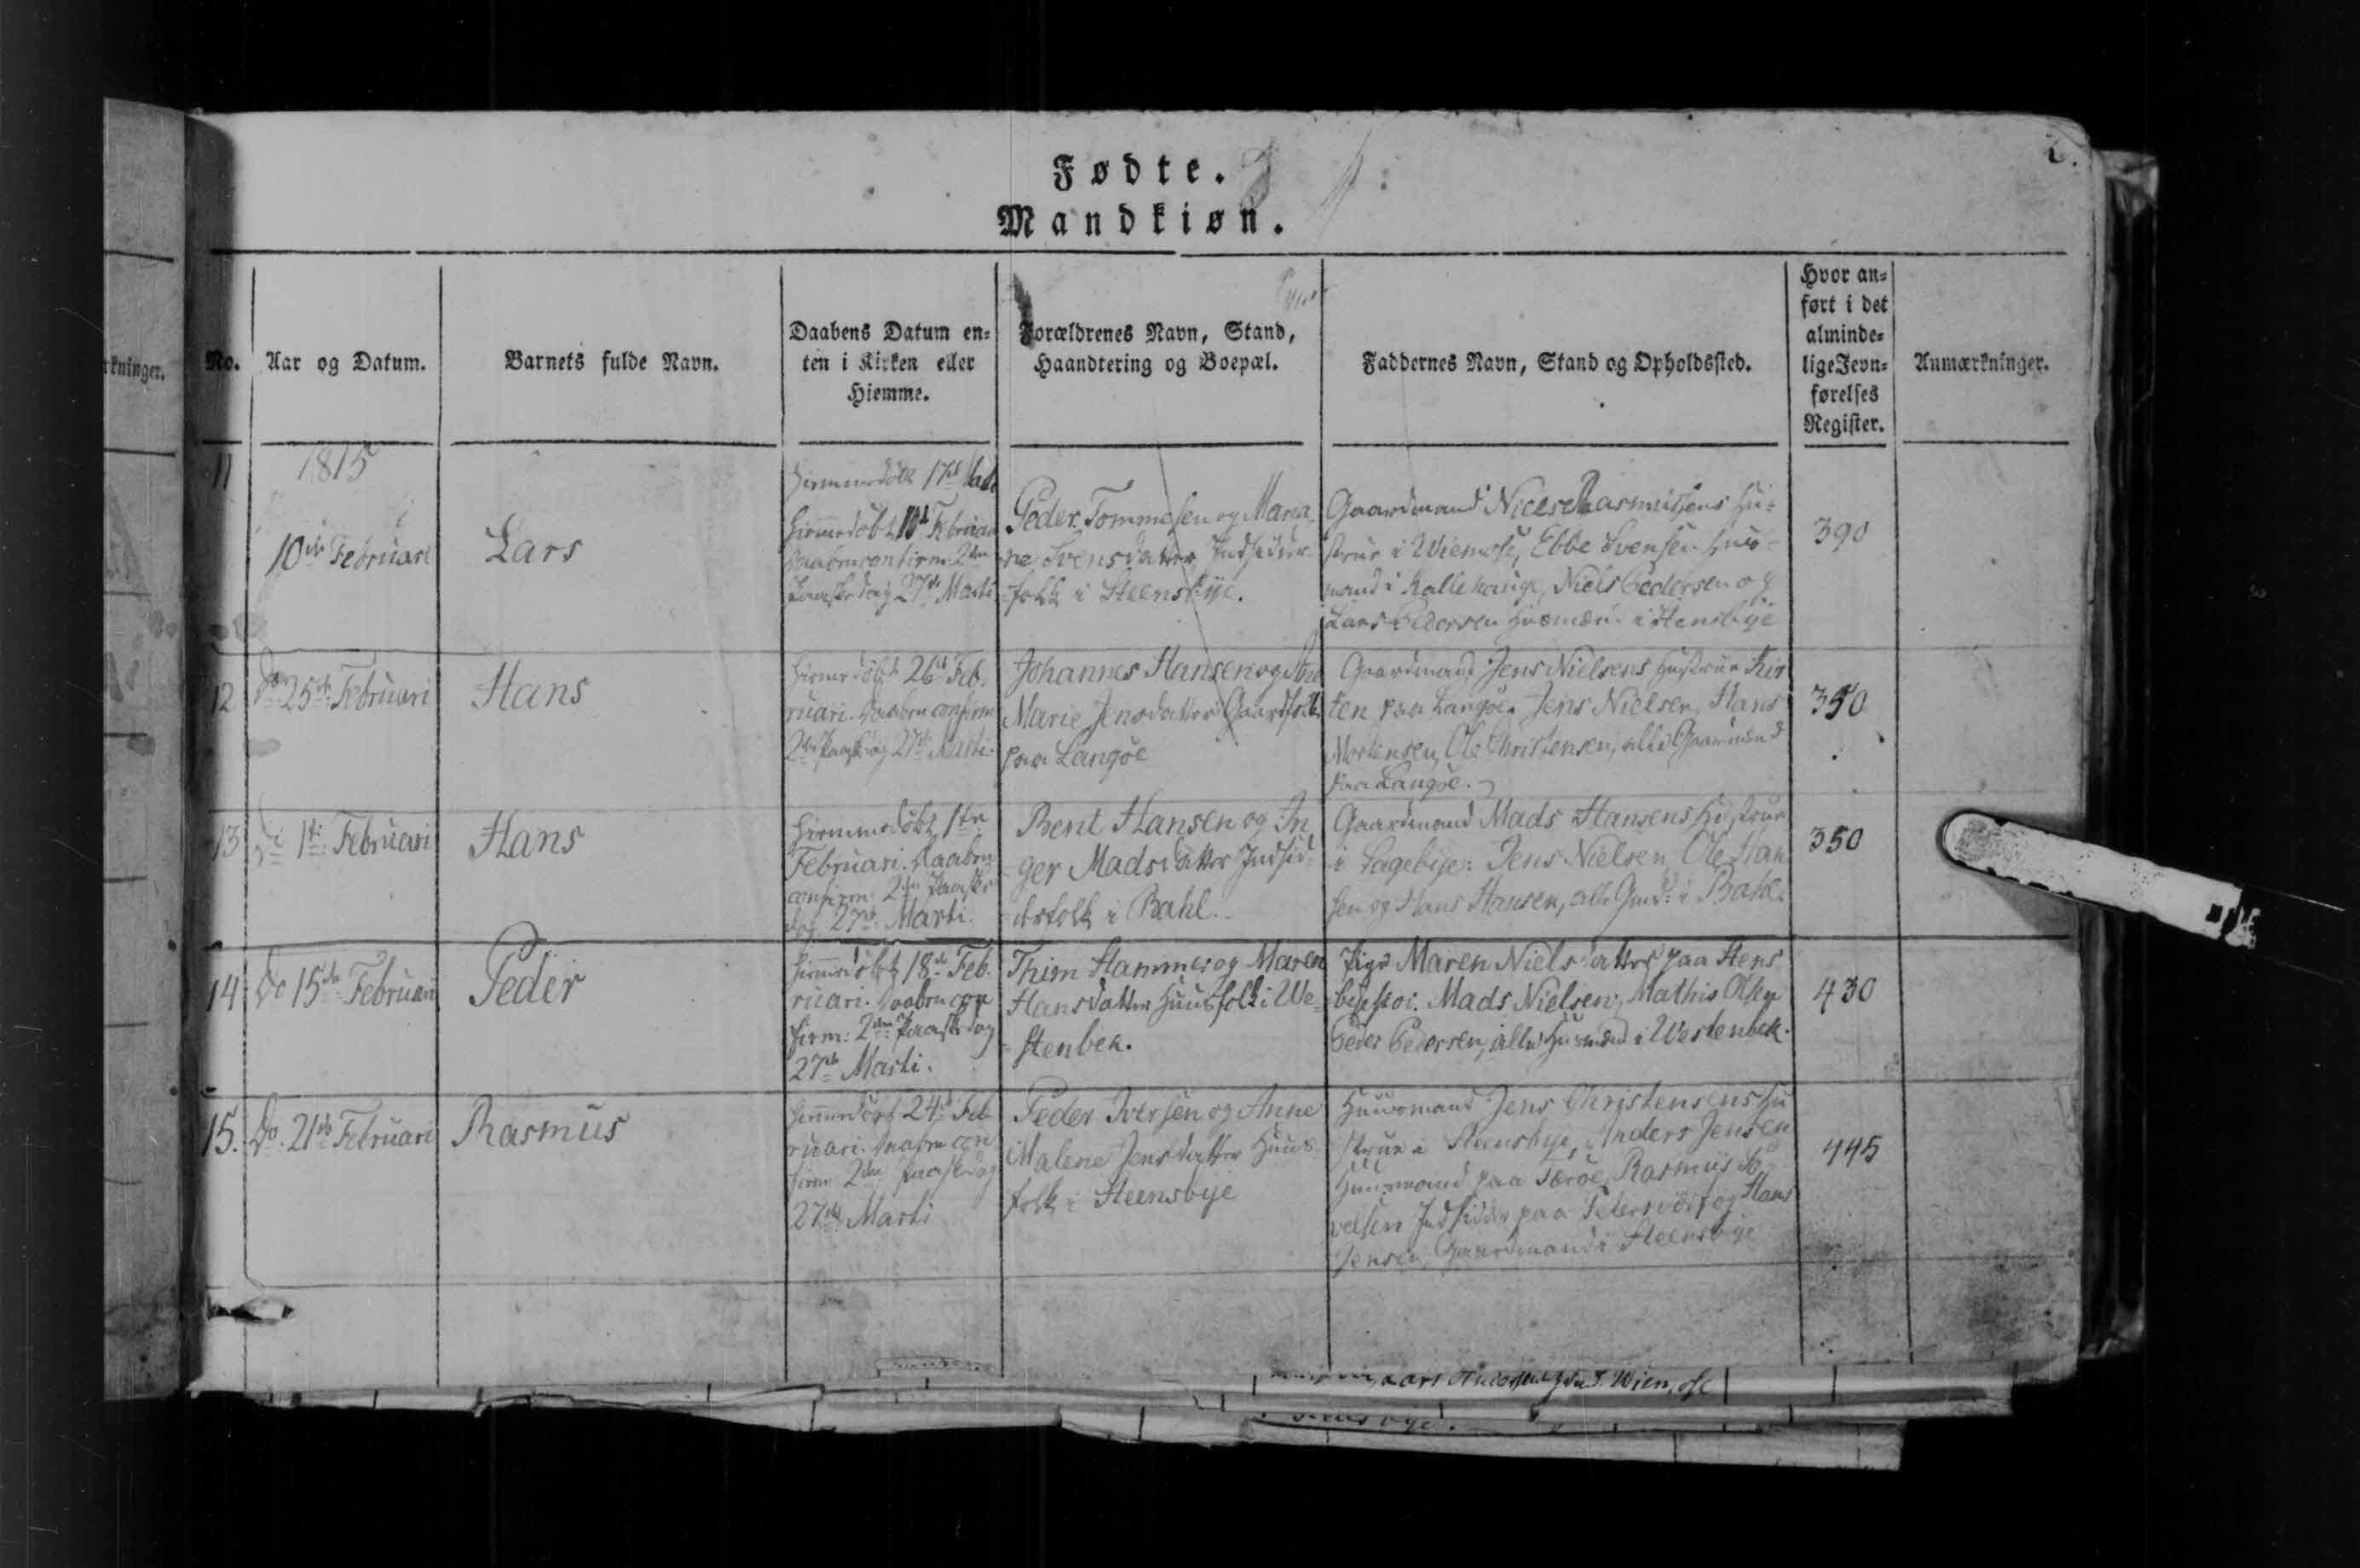 Fødte.
Mandkiøn.
2.
rkninger.
No.
Aar og Datum.
Barnets fulde Navn.
Daabens Datum en=
ten i Kirken eller
Hiemme.
Forældrenes Navn, Stand,
Haandtering og Boepæl.
Faddernes Navn, Stand og Opholdssted.
Hvor an=
ført i det
alminde=
lige Jevn=
førelses
Register.
Anmærkninger.
11
1815
10de Februari
Lars
Hiemmedöbt 17de
Hiemmedöbt Februar
Daaben confirm. 2den
Paaskedag 27de Marti
Peder Tommesen og Maria
ne Svensdatter Indsidder
folk i Steensbye.
Gaardmand Niels Rasmussens Hu=
strue i Wiemose, Ebbe Svensen Huus=
mand i Kallehauge, Niels Pedersen og
Lars Pedersen Huusmænd i Stensbye
390
12
Do 25de Februari
Hans
Hiemmedöbt 26de Feb.
ruari. Daaben confirm
2den Paaskedag 27de Marti.
Johannes Hansen og Ane
Marie Jensdatter Gaardfolk
paa Langöe
Gaardmand Jens Nielsens Hustrue Kir
sten paa Langöe. Jens Nielsen, Hans
Mortensen, Ole Christensen, alle Gaardmænd
paa Langöe.
350
13
1ste Februari
Hans
Hiemmedöbt 1ste
Februari. Daaben
confirm. 2den Paaske
dag 27de Marti.
Bent Hansen og In
ger Madsdatter Indsid=
derfolk i Bahl.
Gaardmand Mads Hansens Hustrue
i Sagebye: Jens Nielsen, Ole Han
sen og Hans Hansen, alle Gmd: i Bahl.
350
14
Do 15de Februari
Peder
Hiemmedöbt 18de Feb.
ruari. Daaben con
firm: 2den Paaskedag
27de Marti.
Thim Hammer og Maren
Hansdatter Huusfolk i We=
stenbek.
Pige Maren Nielsdatter paa Stens
Mads Nielsen, Mathis Olsen
Peder Pedersen, alle Huusmænd i Westenbek.
430
15.
Do. 21de Februari
Rasmus
Hiemmedöbt 24de Feb
ruari. Daaben con
firm 2den Paaskedag
27de Marti
Peder Iversen og Anne
Malene Jensdatter Huus
folk i Steensbye
Huusmand Jens Christensens Hu
strue i Steensbye, Anders Jensen
Huusmand paa Tæröe, Rasmus
Indsidder paa Petersværf og Hans
Jensen, Gaardmand i Steensbye
445
Lars Wiemose